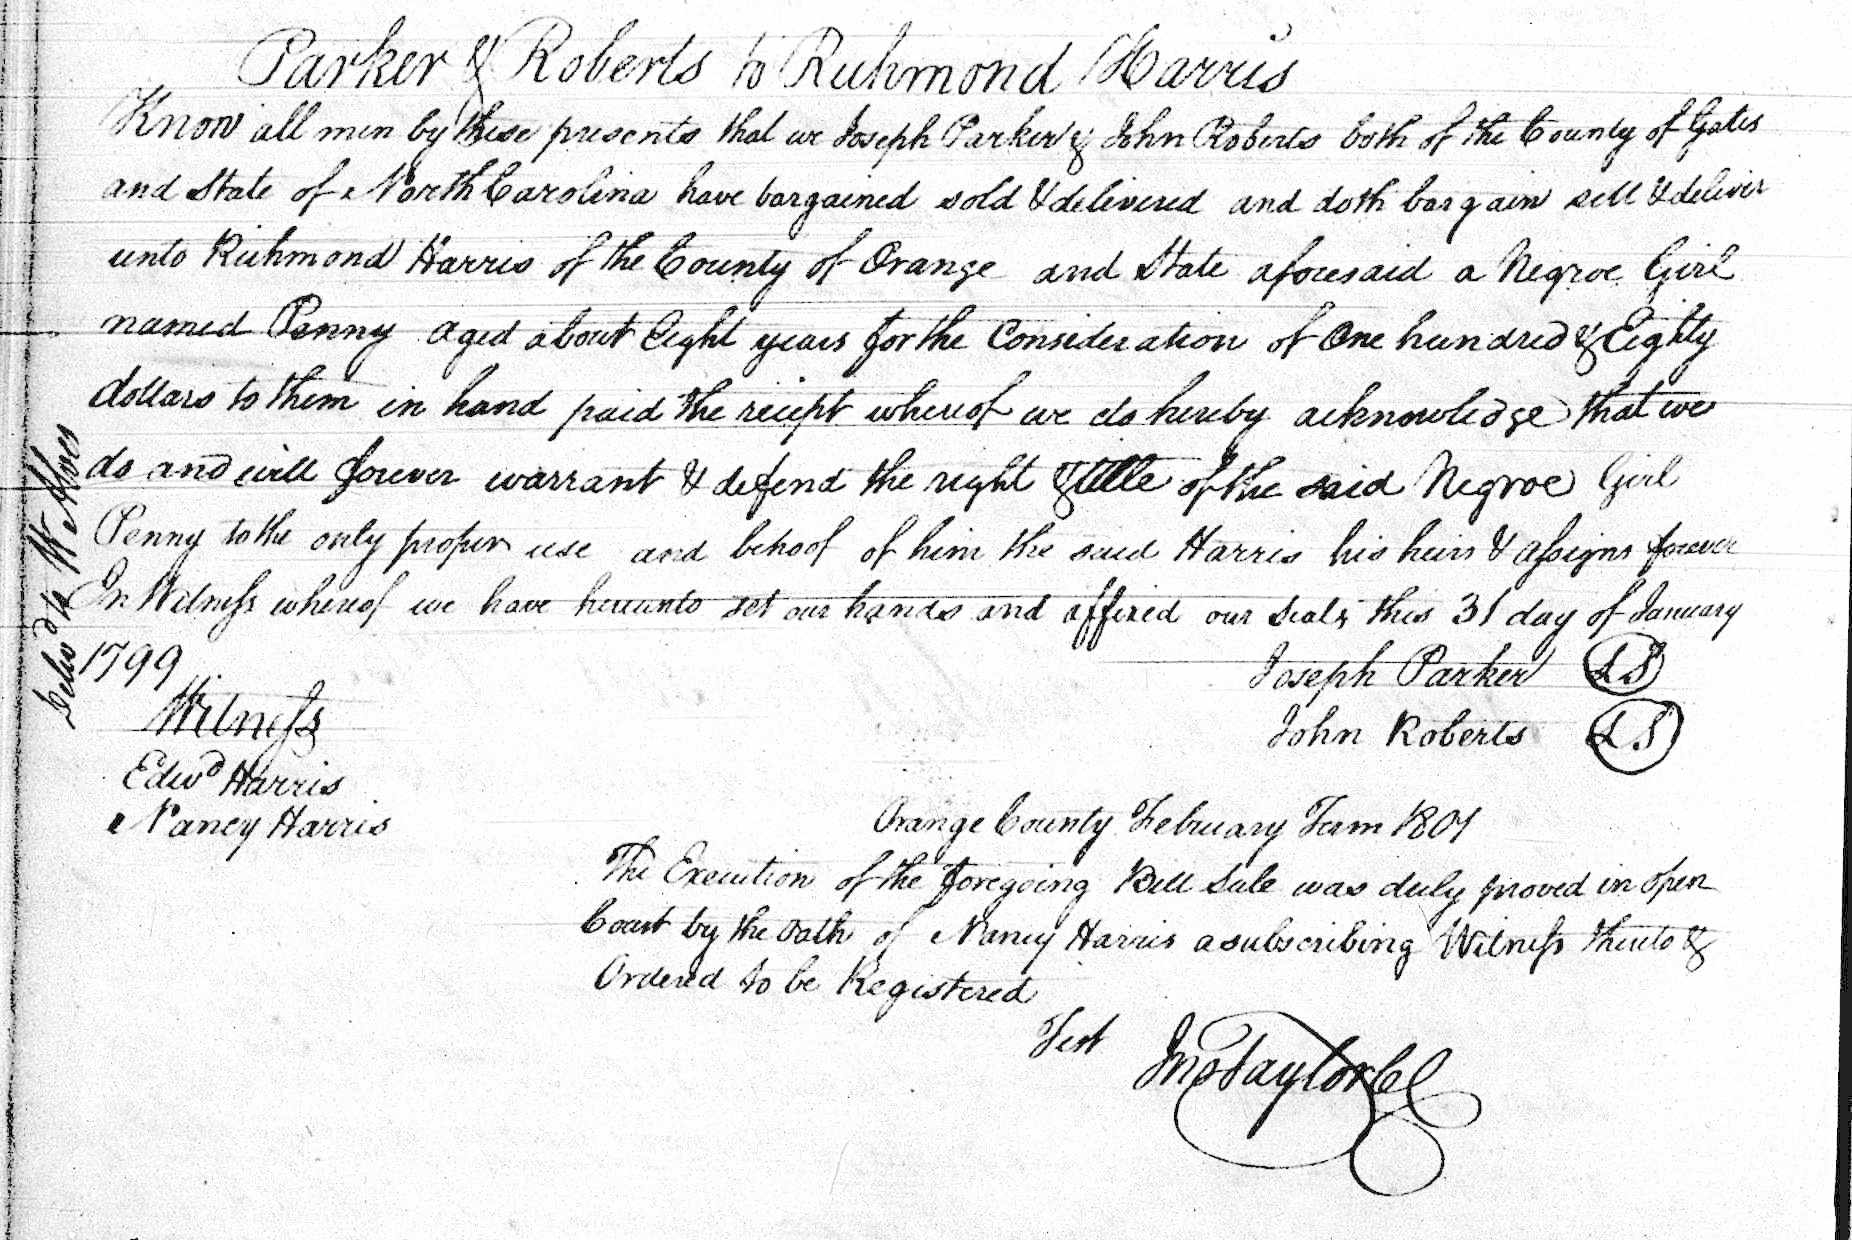 Parker & Roberts to Richmond Harris
Know all men by these presents that we Joseph Parker & John Roberts both of the County of Gates
and State of North Carolina have bargained sold & delivered and doth bargain sell & deliver
unto Richmond Harris of the County of Orange and State aforesaid a Negroe Girl
named Penny aged about Eight years for the Consideration of One hundred & Eighty
dollars to them in hand paid the reciept whereof we do hereby acknowledge that we
do and will forever warrant & defend the right & title of the said Negroe Girl
Penny to the only proper use and behoof of him the said Harris his heirs & assigns forever
In Witness whereof we have hereunto set our hands and affixed our Seals this 31 day of January
1799
Joseph Parker LS
John Roberts LS
Witness
Edwd Harris
Nancy Harris
Delivd to W Alves
Orange County February Term 1801
The Execution of the foregoing Bill Sale was duly proved in open
Court by the Oath of Nancy Harris a subscribing Witness thereto &
Ordered to be Registered
Test Jno Taylor CC